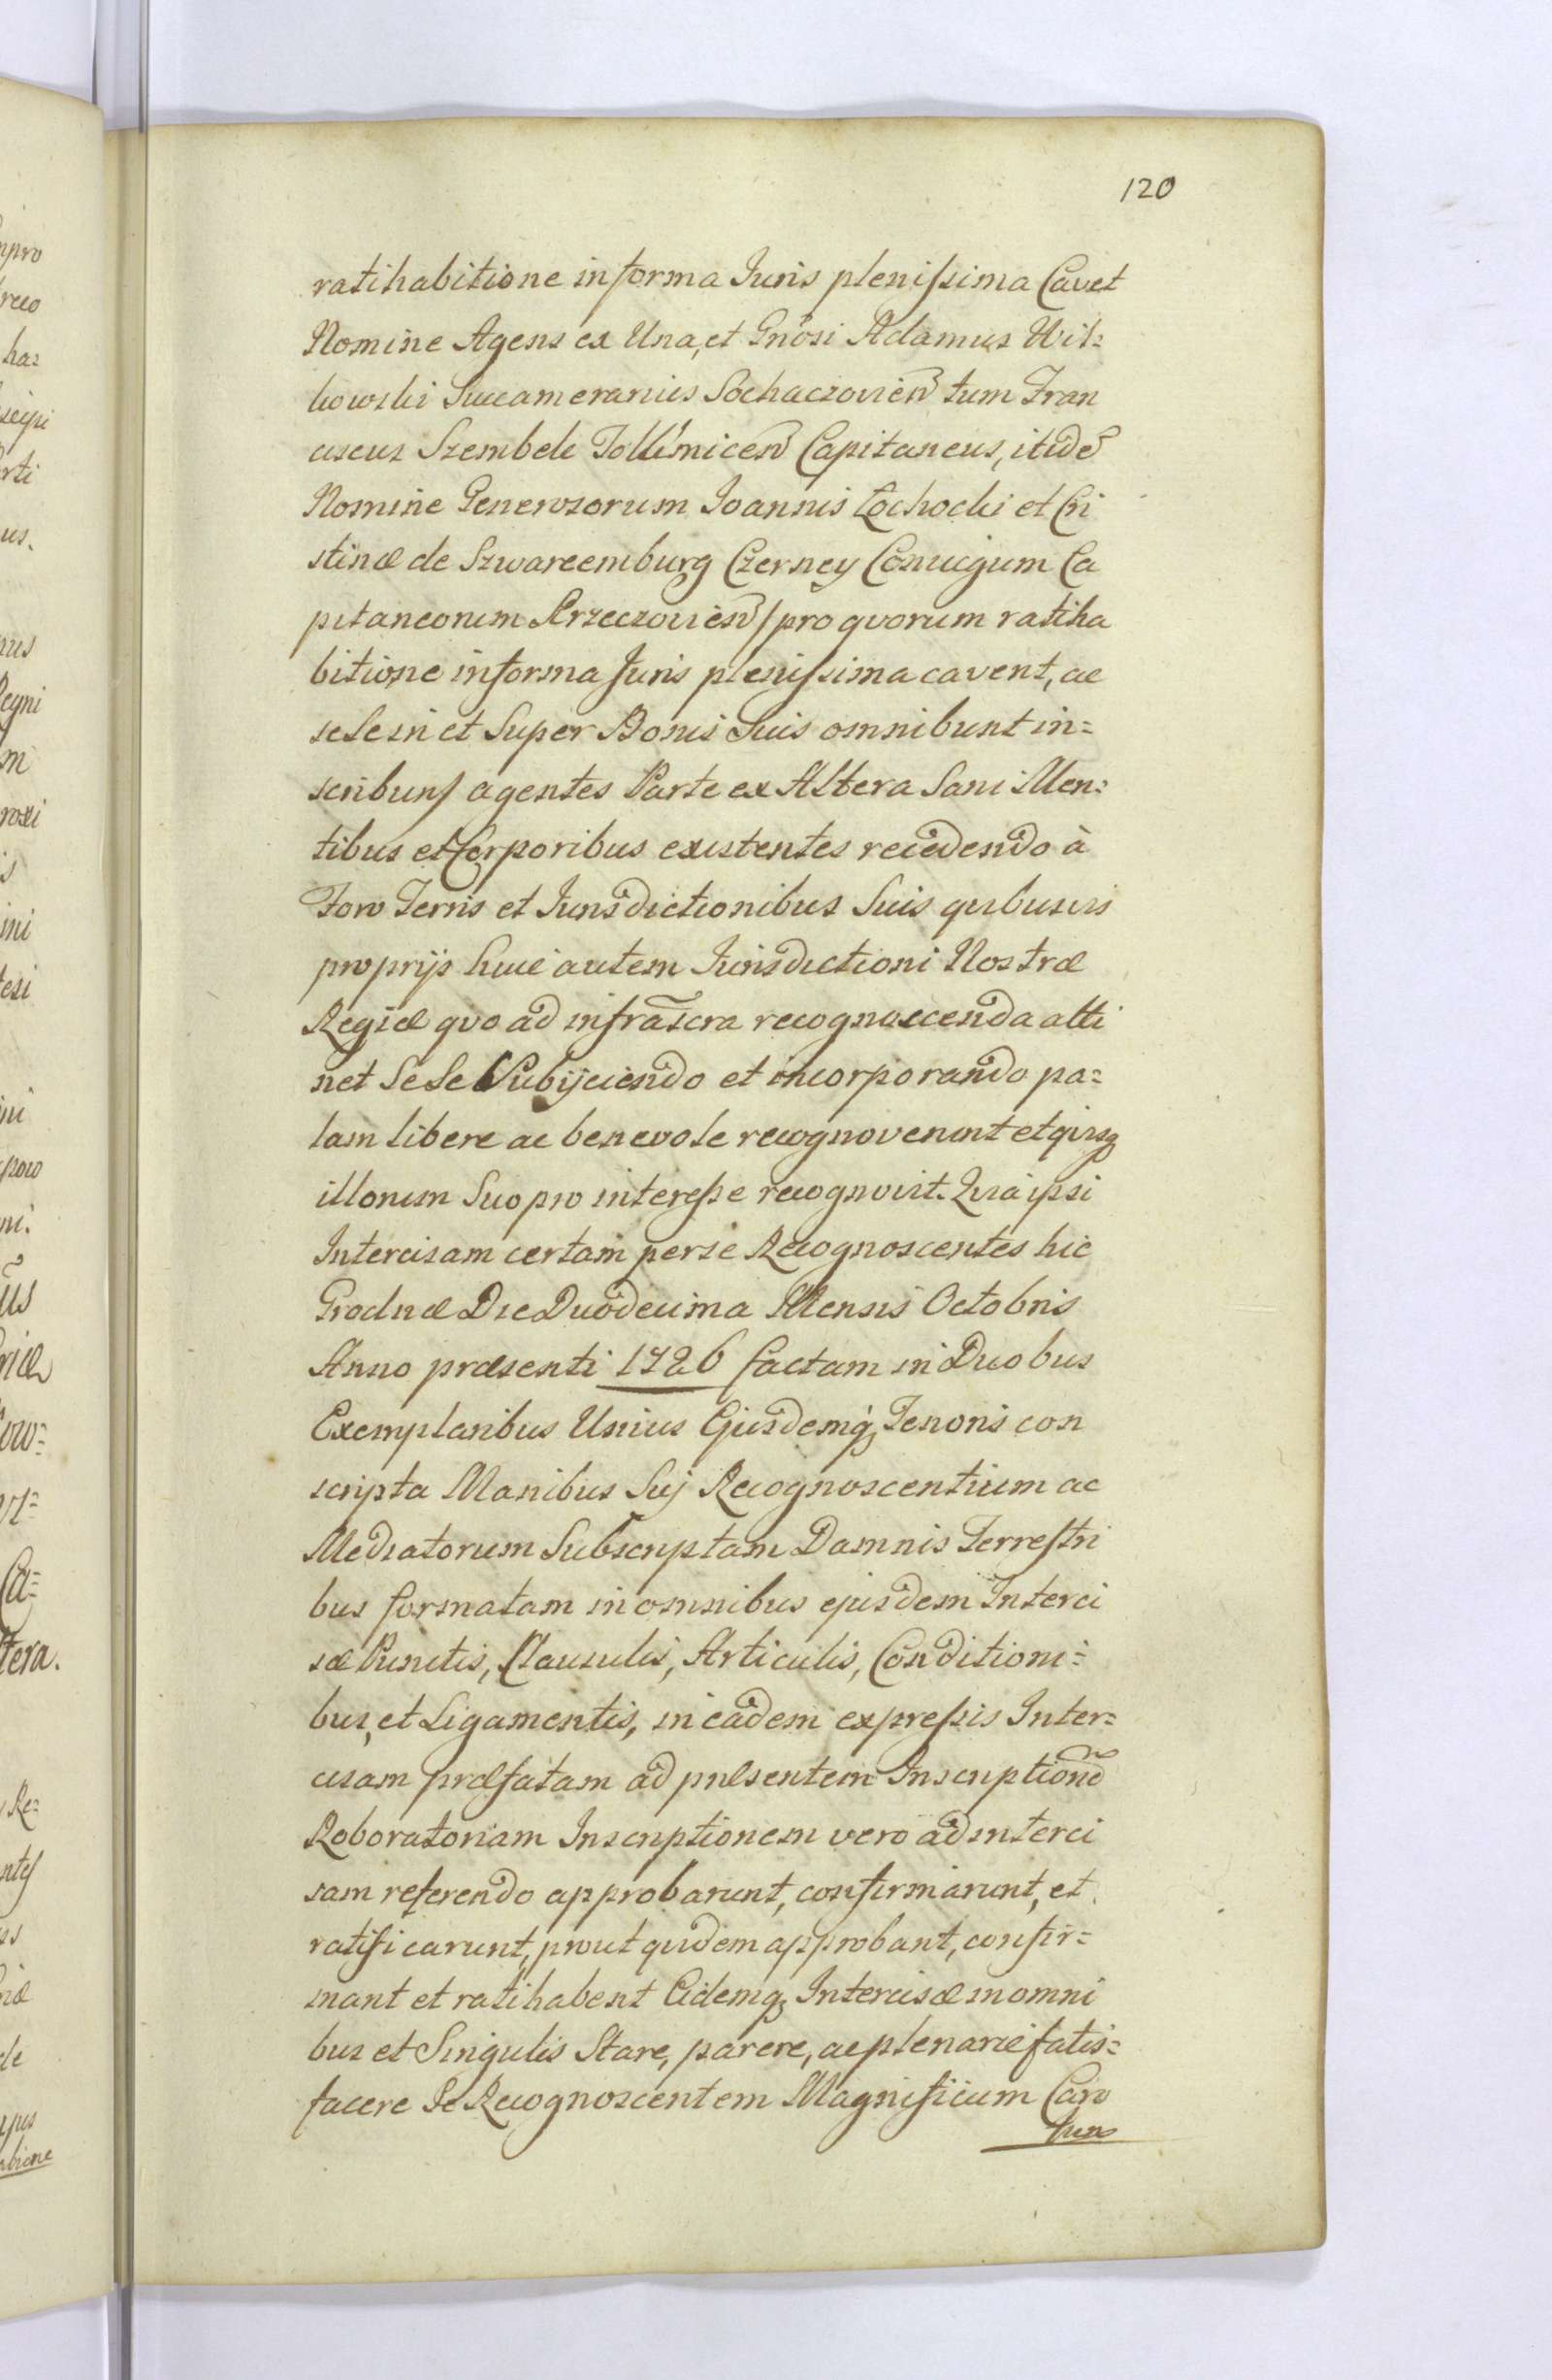 120
ratihabitione in forma Juris plenissima Cavet
Nomine Agens ex Una, et Gnosi Adamus Wil=
kowski Succamerarius Sochaczovien tum Fran
ciscus Szembek Tolkmicen Capitaneus, itide
Nomine Generosorum Joannis Łochocki et Cri
stinæ de Szwarcemburg Czerney Conjugum Ca
pitaneorum /pro qvorum ratiha
bitione in forma Juris plenissima cavent, ac
sese in et Super Bonis Suis omnibunt in=
scribunt/ agentes Parte ex Altera Sani Men=
tibus et Corporibus existentes recedendo à
Foro Terris et Jurisdictionibus Suis qvibusvis
proprijs huic autem Jurisdictioni Nostræ
Regiæ qvo ad infrascra recognoscenda atti
net Sese Subijciendo et incorporando pa=
lam libere ac benevole recognoverunt et qvisq
illorum Suo pro interesse recognovit. Qvia ipsi
Intercisam certam per se Recognoscentes hic
Grodnæ Die Duodecima Mensis Octobris
Anno præsenti 1726 factam in Duobus
Exemplaribus Unius Ejusdemq Tenoris con
scripta Manibus Suj Recognoscentium ac
Mediatorum Subscriptam Damnis Terrestri
bus formatam in omnibus ejusdem Interci
sæ Punctis, Clausulis, Articulis, Conditioni=
bus, et Ligamentis, in eadem expressis Inter=
cisam præfatam ad præsentem Inscriptione
Roboratoriam Inscriptionem vero ad interci
sam referendo approbarunt, confirmarunt, et
ratificarunt, prout qvidem approbant, confir=
mant et ratihabent Eidemq Intercisæ in omni
bus et Singulis Stare, parere, ac plenarie satis=
facere Se Recognoscentem Magnificum Caro
lum